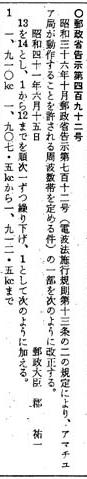 ○郵政省告示第四百九十二号
昭和三十六年十月郵政省告示第七百十二号（電波法施行規則第十三条の二の規定により、アマチユ
ア局が動作することを許される周波数帯を定める件）の一部を次のように改正する。
昭和四十一年六月十五日
郵政大臣　郡　祐一
13を14とし、1から12までを順次一ずつ繰り下げ、1として次のように加える。
1　一、九一〇kc　一、九〇七・五kcから一、九一二・五kcまで